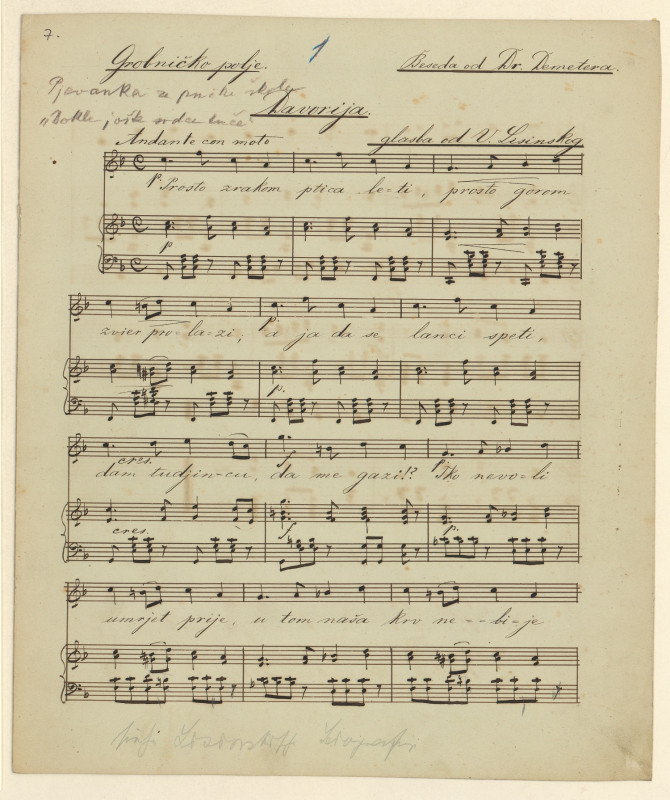 7.
1
Grobničko polje. Beseda od Dr. Demetera.
Pjevanka za pučke škole
Davorija.
"Dokle još srdce kuca"
Andante con moto glasba od V. Lisinskog
p. Prosto zrakom ptica le=ti, prosto gorom
p
zvier pro=la=zi, p. a ja da se lanci speti,
p.
cres.
dam tudjin=cu, da me gazi!? Tko nevo=li
f p.
cres. f p.
umrjet prije, u tom naša krv ne=-bi=je